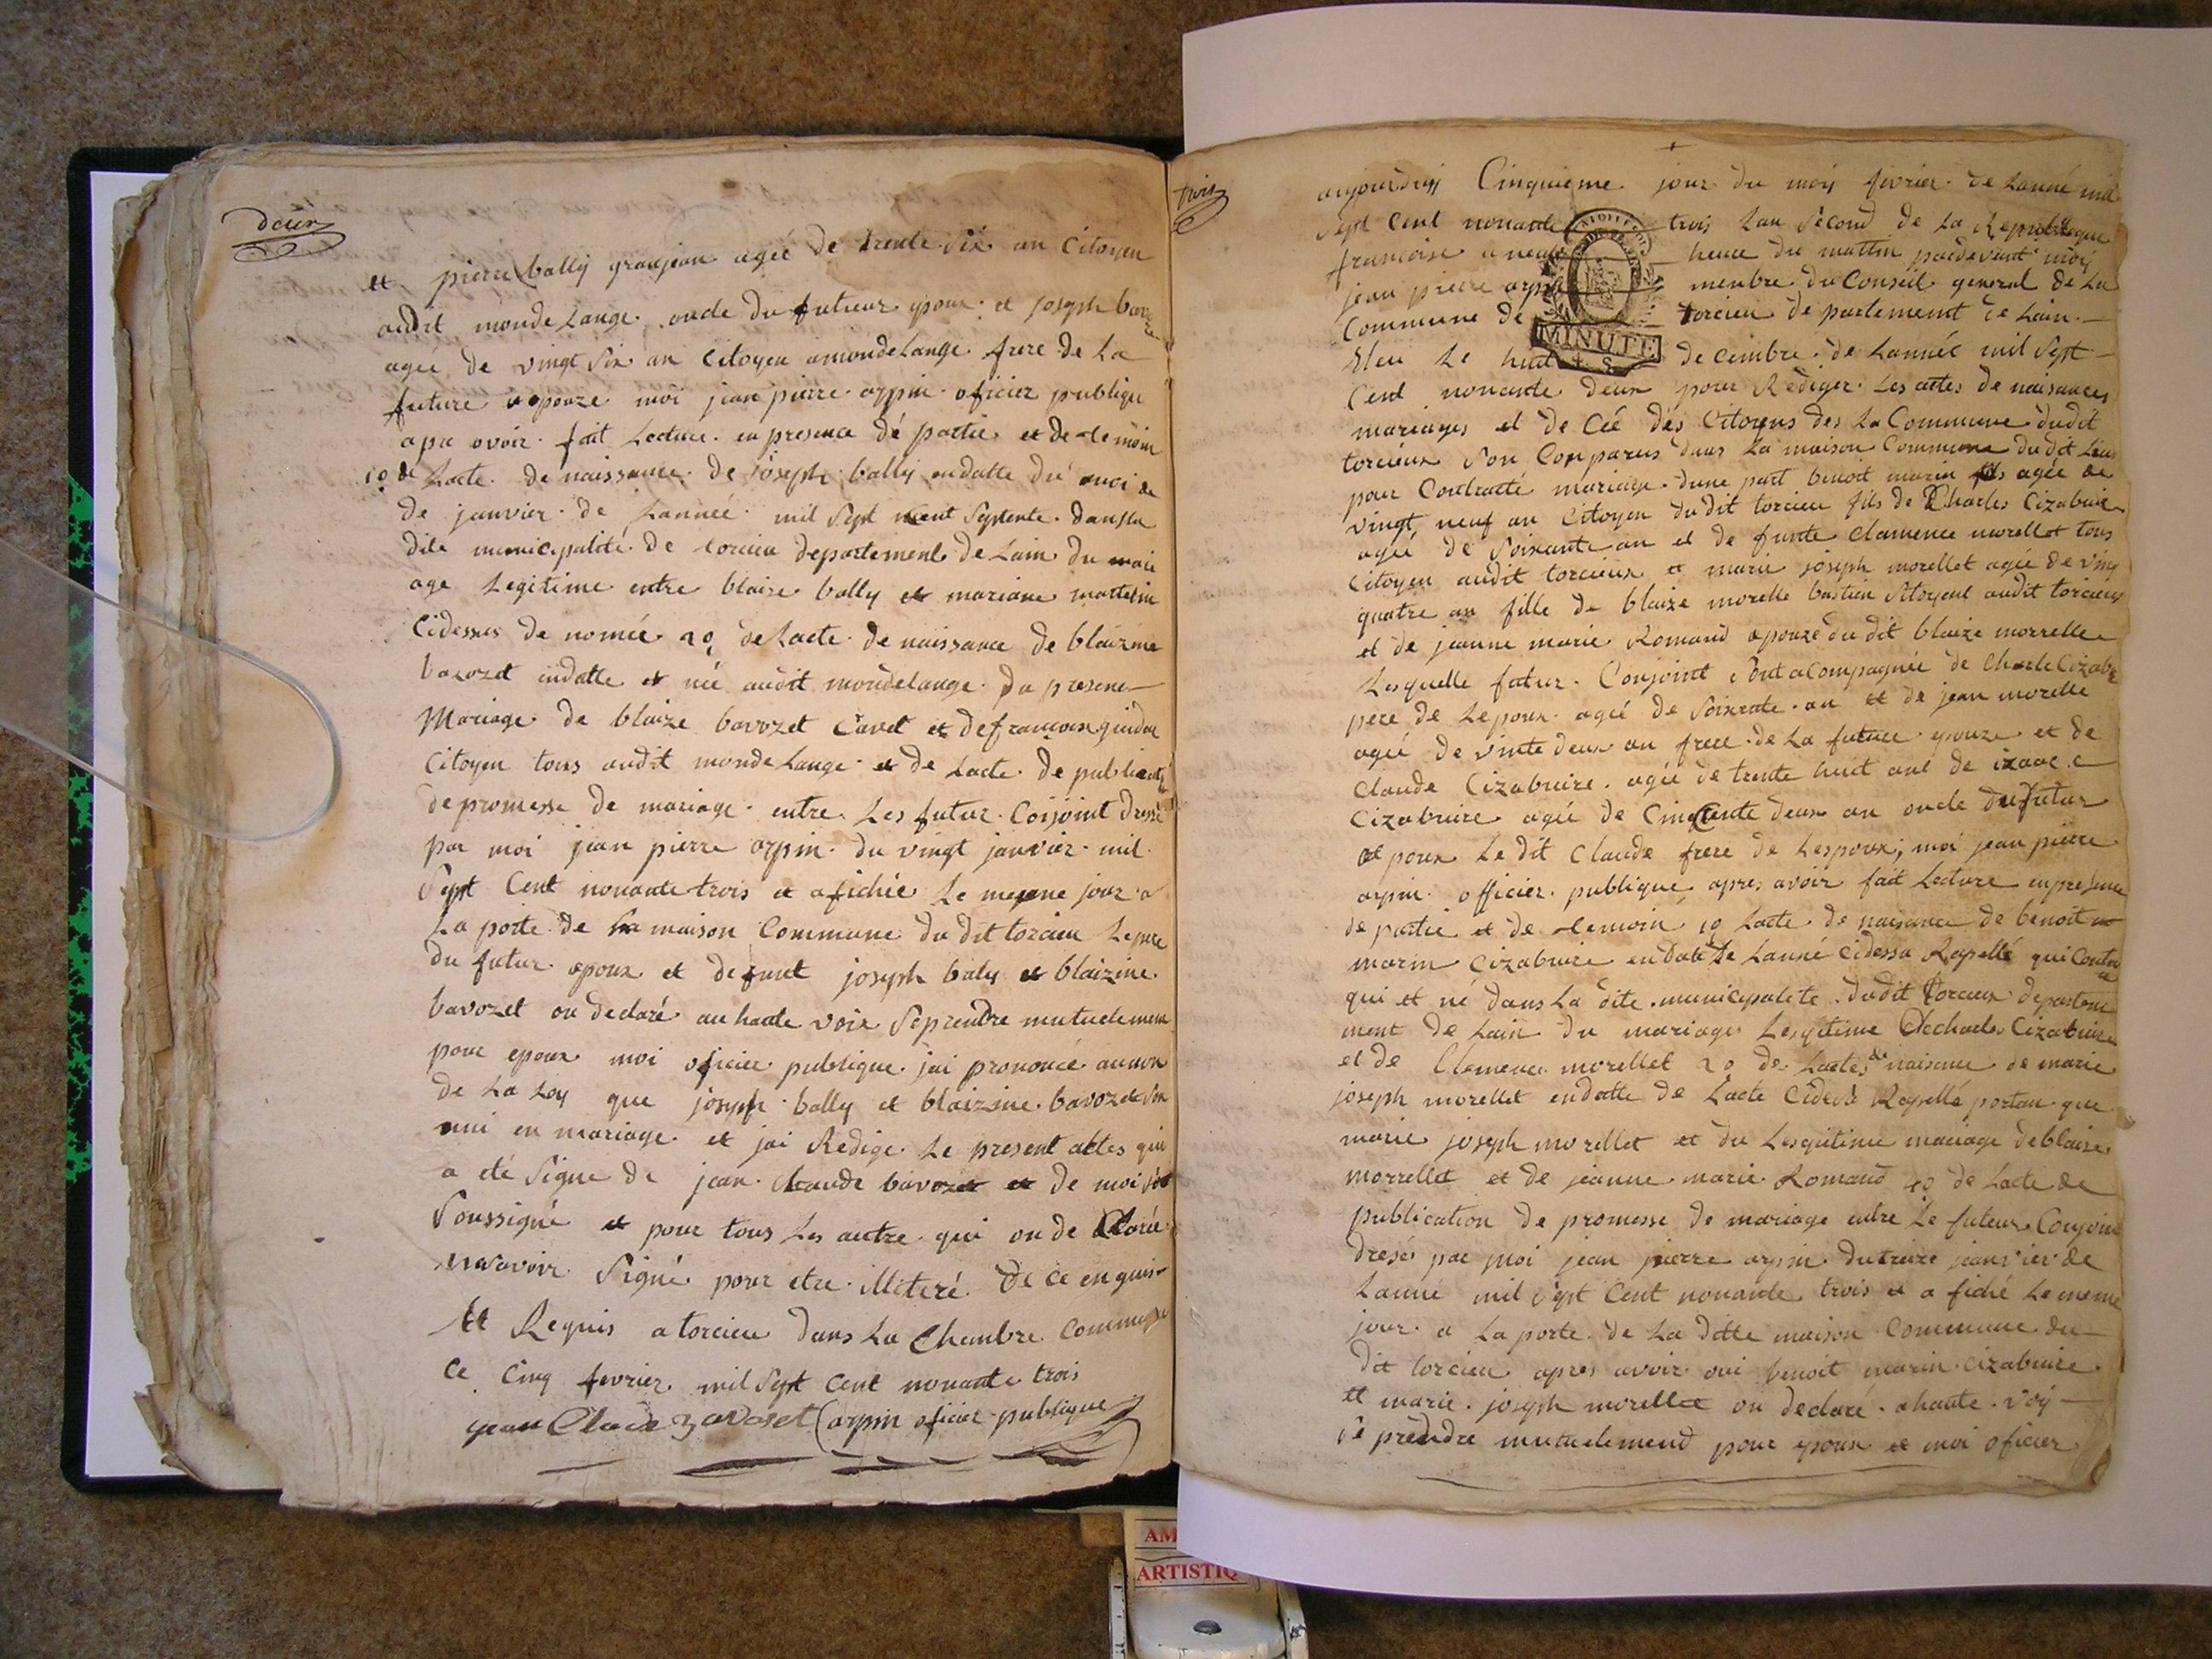 deux
et pierre bally granjean agée de trente six an Citoyen
audit monde Lange oncle du futeur epoux et joseph bavoz
agée de vingt six an Citoyen a monde Lange frere de La
future epouze moi jean pierre arpin oficier publique
apre avoir fait Lecture en presence dé partie et de temoin
10 de Lacte de naissance de joseph bally en datte du
de janvier de Lannée mil Sept cent Septente dans la
dite municipalité de torcieu departement de Lain du mari
age Legitime entre blaise bally et mariane martelin
Cidessus de nomée 20 de Lacte de naissance de blaizine
bavozet endatte et née audit mondelange du presene
Mariage de blaize bavozet Cavet et de francoise guidon
Citoyen tous audit monde Lange et de Lacte de publicat
de promesse de mariage entre Les futur Conjoint dressé
par moi jean pierre arpin du vingt janvier mil
Sept Cent nonante trois et afichée Le meme jour a
La porte de La maison Commune du dit torcieu Le pere
du futur epoux et defunt joseph baly et blaizine
bavozet on declaré au haute voix Seprendre mutuelement
pour epoux moi oficier publique jai prononcé au nom
de La Loy que joseph bally et blaizine bavozet Son
uni en mariage et jai Redige Le present actes qui
a eté Signe de jean Claude bavozet et de moi
Soussigné et pour tous Les autre qui on de Claré
nesavoir Signé pour etre illiteré de ce enquis
et Requis a torcieu dans La Chambre Commune
Ce Cinq fevrier mil Sept Cent nonante trois
jean Claude bavoset arpin oficier publique
trois
aujourdhuj Cinquieme jour du moij fevrier de Lanné mil
Sept Cent nonante trois Lan Second de La Republique
francoise a neuf heure du mattin pardevant moij
jean pierre arpin menbre du Conseil general de La
Commune de torcieu de partement de Lain
MINUTE
Eleu Le huit decembre de Lannée mil Sept
Cent nonante deux pour Rediger Les actes de naisances
mariages et de Cée dés Citoyens des La Commune dudit
torcieux Son Conparus dans La maison Commune dudit Lieu
pour Contracté mariage dune part benoit marin fils agée de
vingt neuf an Citoyen dudit torcieu fils de Charles Cizabuire
agée de Soixante an et de funte Clamence morellet tous
Citoyen audit torcieux et marie joseph morellet agée de ving
quatre an fille de blaize morelle bastien Sitoyent audit torcieux
et de jeanne marie Romand epouze du dit blaize morrelle
Lesquelle futur Conjoint Sont acompagnée de Charle Cizabu
pere de Lepoux agée de Soixante an et de jean morelle
agée de vinte deux an frere de La future epouze et de
Claude Cizabuire agée de trente huit ané de izaac
Cizabuire agée de Cinquente deux an oncle du futur
epoux Le dit Claude frere de Lespoux, moi jean pierre
arpin officier publique apres avoir fait Lecture en presence
de partie et de temoin 10 Lacte de naisance de benoit
marin Cizabuire en date de Lanné Cidessu Rapellé
qui et né dans La dite municipalite dudit torcieux departeme
ment de Lain du mariage Lesgitime de charles Cizabuire
et de Clemence morellet 20 de Lacte de naisance de marie
joseph morellet endatte de Lacte Cidesu Rapellé portan que
marie joseph morellet et du Lesgitime mariage de blaise
morrellet et de jeanne marie Romand 40 de Lacte de
publication de promesse de mariage entre Le futeur Conjoin
dresés par moi jean pierre arpin du treize jeanvier de
Lanné mil Sept Cent nonante trois et a fiché Le meme
jour a La porte de La ditte maison Commune du
dit torcieu apres avoir oui benoit marin Cizabuire
et marie joseph morellet on declaré a haute voij
Se prendre mutuelemend pour epoux et moi oficier
AM
ARTISTIQ